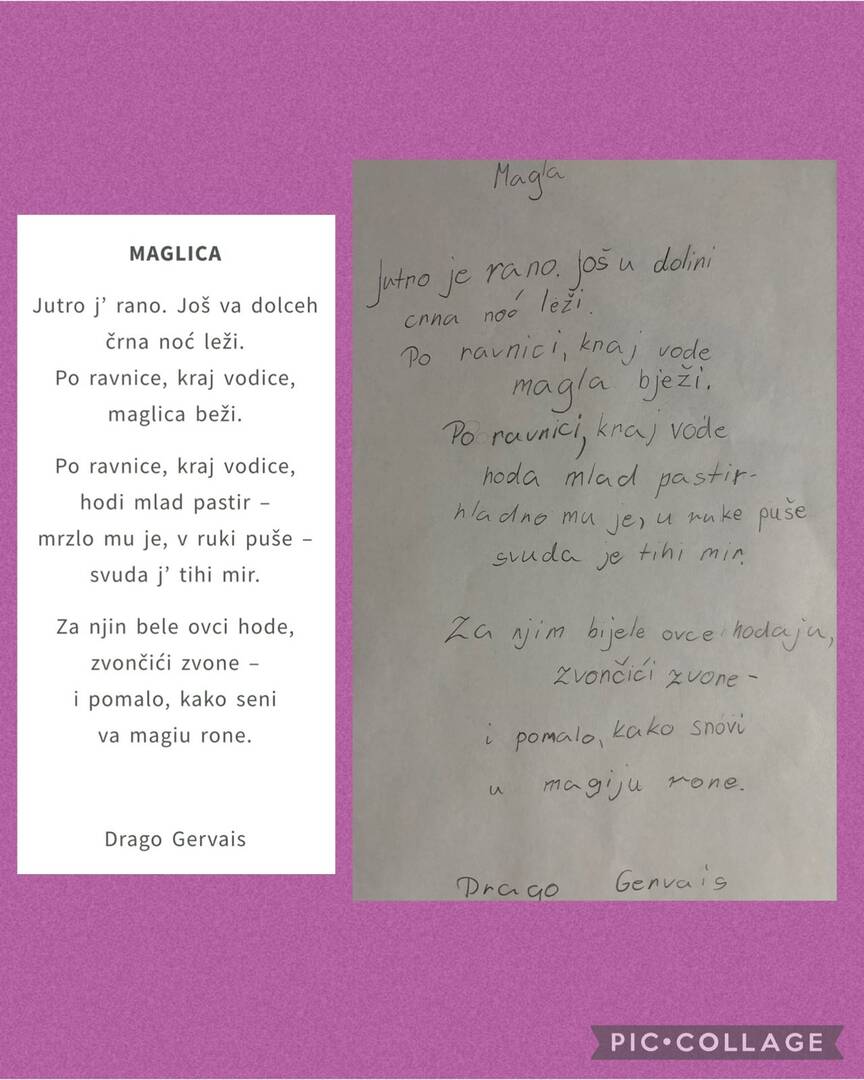 MAGLICA
Jutro j’ rano. Još va dolceh
črna noć leži.
Po ravnice, kraj vodice,
maglica beži.
Po ravnice, kraj vodice,
hodi mlad pastir –
mrzlo mu je, v ruki puše –
svuda j’ tihi mir.
Za njin bele ovci hode,
zvončići zvone –
i pomalo, kako seni
va magiu rone.
Drago Gervais
Magla
Jutro je rano. Još u dolini
crna noć leži.
Po ravnici, kraj vode
magla bježi.
Po ravnici, kraj vode
hoda mlad pastir-
hladno mu je, u ruke puše
svuda je tihi mir.
Za njim bijele ovce hodaju,
zvončići zvone -
i pomalo, kako snovi
u magiju rone.
Drago Gervais
PIC•COLLAGE